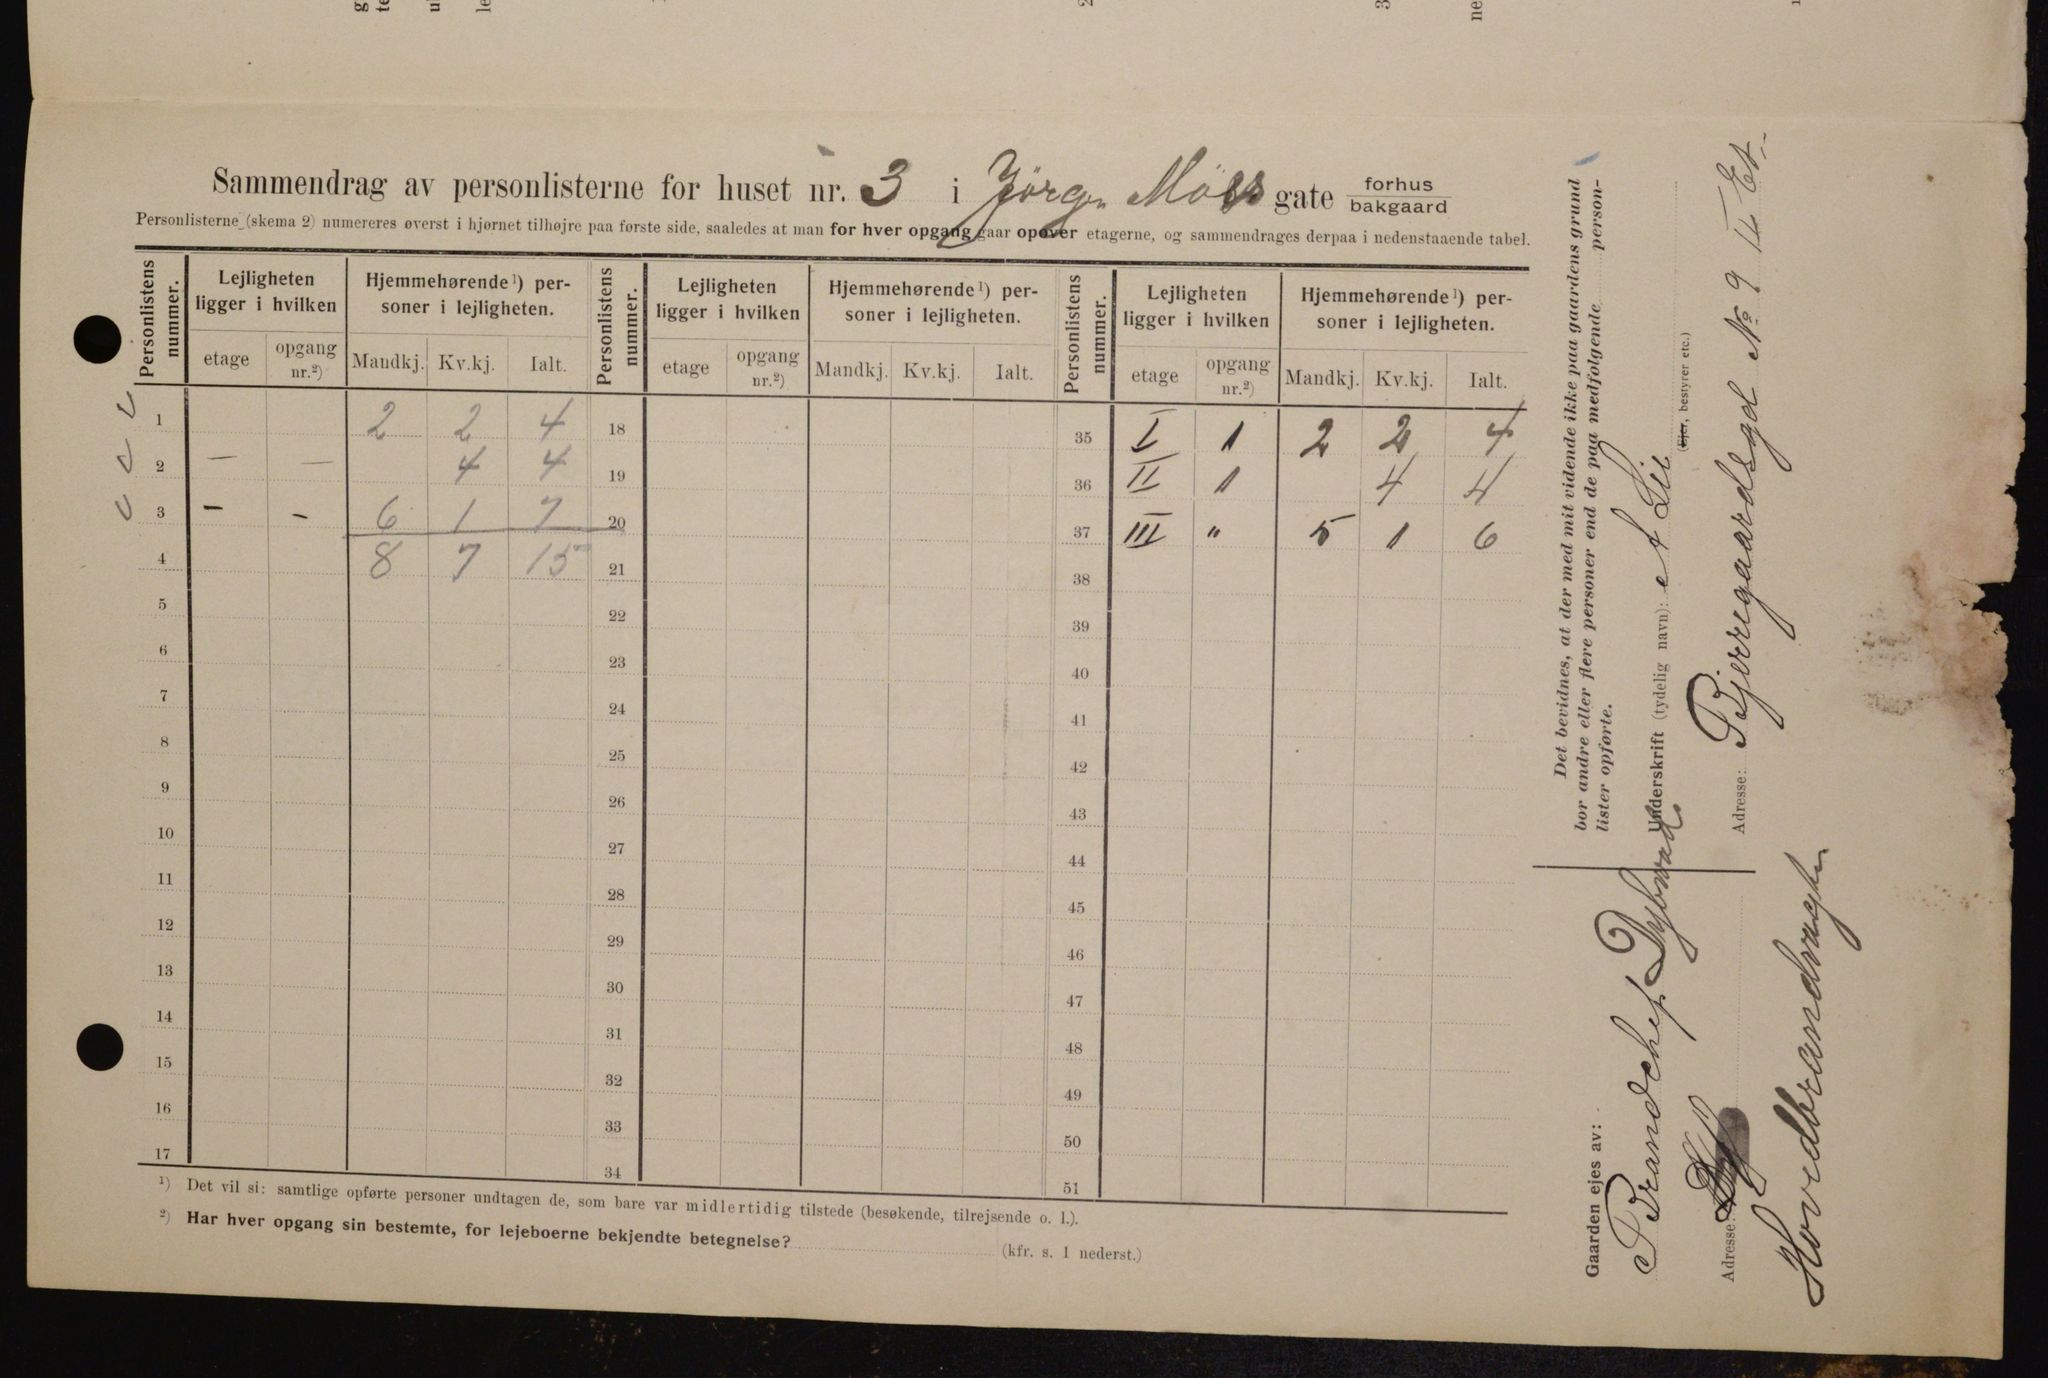 Sammendrag av personlisterne for huset nr. 3 i Jørgen Moes gate forhus bakgaard
Personlisterne (skema 2) numereres øverst i hjørnet tilhøjre paa første side, saaledes at man for hver opgang gaar opover etagerne, og sammendrages derpaa i nedenstaaende tabel.
Personlistens nummer. Lejligheten ligger i hvilken Hjemmehørende ¹) personer i lejligheten. Personlistens nummer. Lejligheten ligger i hvilken Hjemmehørende ¹) personer i lejligheten. Personlistens nummer. Lejligheten ligger i hvilken Hjemmehørende ¹) personer i lejligheten.
etage opgang nr.²) Mandkj. Kv.kj. Ialt. etage opgang nr.²) Mandkj. Kv.kj. Ialt. etage opgang nr.²) Mandkj. Kv.kj. Ialt.
1 2 2 4 18 35 I 1 2 2 4
2 — — 4 4 19 36 II 1 4 4
3 - - 6 1 7 20 37 III " 5 1 6
4 8 7 15 21 38
5 22 39
6 23 40
7 24 41
8 25 42
9 26 43
10 27 44
11 28 45
12 29 46
13 30 47
14 31 48
15 32 49
16 33 50
17 34 51
¹) Det vil si: samtlige opførte personer undtagen de, som bare var midlertidig tilstede (besøkende, tilrejsende o. l.).
²) Har hver opgang sin bestemte, for lejeboerne bekjendte betegnelse? (kfr. s. 1 nederst.)
Det bevidnes, at der med mit vidende ikke paa gaardens grund
bor andre eller flere personer end de paa medfølgende person-
lister opførte.
Underskrift (tydelig navn): A Lie
(Ejer, bestyrer etc.)
Adresse: Bjerregaardsgd No 9 II Et.
Gaarden ejes av:
Brandchef Dybwad
Adresse:
Hovedbrandvagten